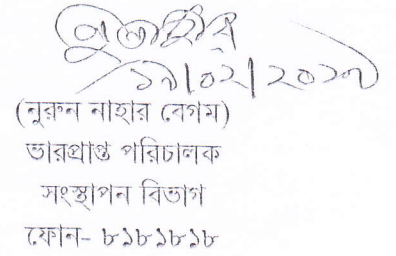 ১৯/০২/২০১৭
(নুরুন নাহার বেগম)
ভারপ্রাপ্ত পরিচালক
সংস্থাপন বিভাগ
ফোন- ৮১৮১৮১৮